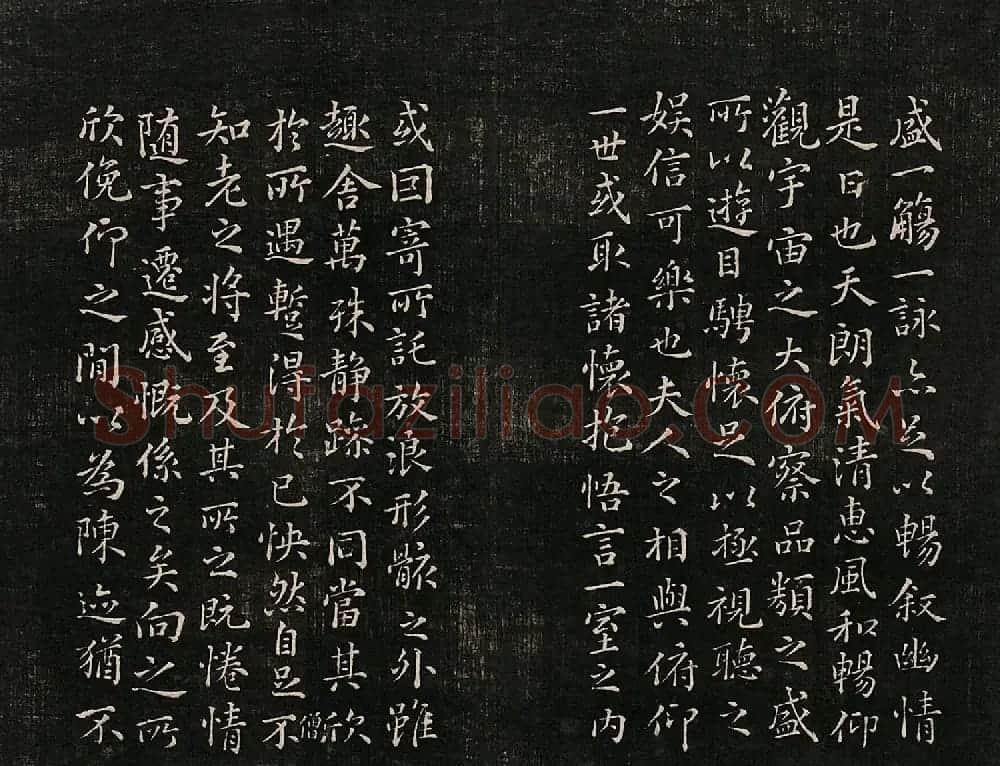 盛一觴一詠亦足以暢叙幽情
是日也天朗氣清惠風和暢仰
觀宇宙之大俯察品類之盛
所以遊目騁懷足以極視聽之
娱信可樂也夫人之相與俯仰
一世或取諸懷抱悟言一室之内
或因寄所託放浪形骸之外雖
趣舍萬殊静躁不同當其欣
於所遇蹔得於己怏然自足不
僧
知老之將至及其所之既惓情
随事遷感慨係之矣向之所
欣俛仰之閒以為陳迹猶不
Shufaziliao.COM